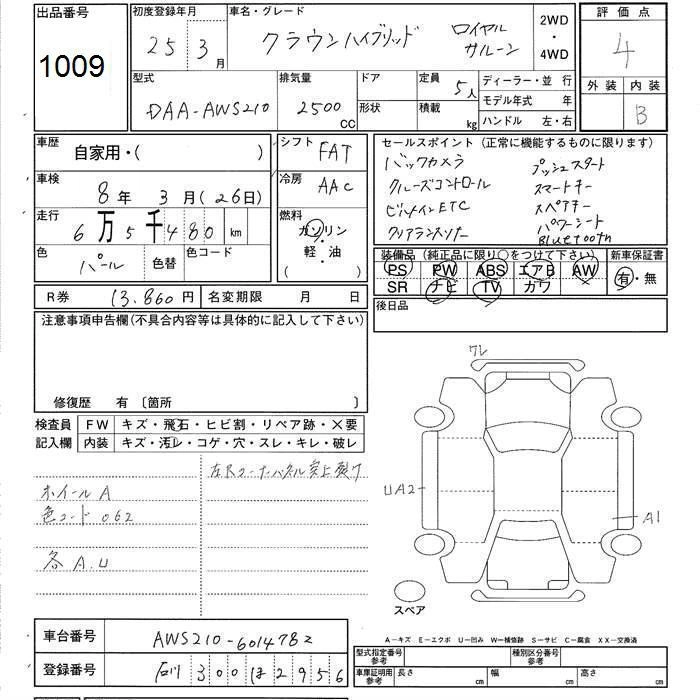 出品番号
1009
初度登録年月
25 3月
車名・グレード
クラウンハイブリッド ロイヤル サルーン
2WD
・
4WD
評価点
4
外装 内装
B
型式
DAA-AWS210
排気量
2500 CC
ドア
形状
定員 5人
積載 kg
ディーラー・並 行
モデル年式 年
ハンドル 左・右
車歴
自家用・( )
シフト
FAT
車検
8年 3月(26日)
冷房
AAC
走行
6万5千480 km
燃料
ガソリン
・
軽・油
( )
色
パール
色替
色コード
R券 13,860円
名変期限 月 日
セールスポイント (正常に機能するものに限ります)
バックカメラ プッシュスタート
クルーズコントロール スマートキー
ビルトインETC スペアキー
クリアランスソナー パワーシート
Bluetooth
装備品 (純正品に限り○をつけて下さい)
PS PW ABS エアB AW
SR ナビ TV カワ
新車保証書
有・無
後日品
注意事項申告欄(不具合内容等は具体的に記入して下さい)
修復歴 有 〔箇所 〕
検査員
記入欄
FW キズ・飛石・ヒビ割・リペア跡・×要
内装 キズ・汚レ・コゲ・穴・スレ・キレ・破レ
左Rコーナーパネル突上裂ケ
ホイールA
色コード 062
各 A.U
ワレ
UA2
A1
スペア
A-キズ E-エクボ U-凹み W-補修跡 S-サビ C-腐食 XX-交換済
車台番号
AWS210-6014782
登録番号
石川 300 ほ 2956
型式指定番号
参考
種別区分番号
参考
車庫証明用
参考
長さ cm
幅 cm
高さ cm